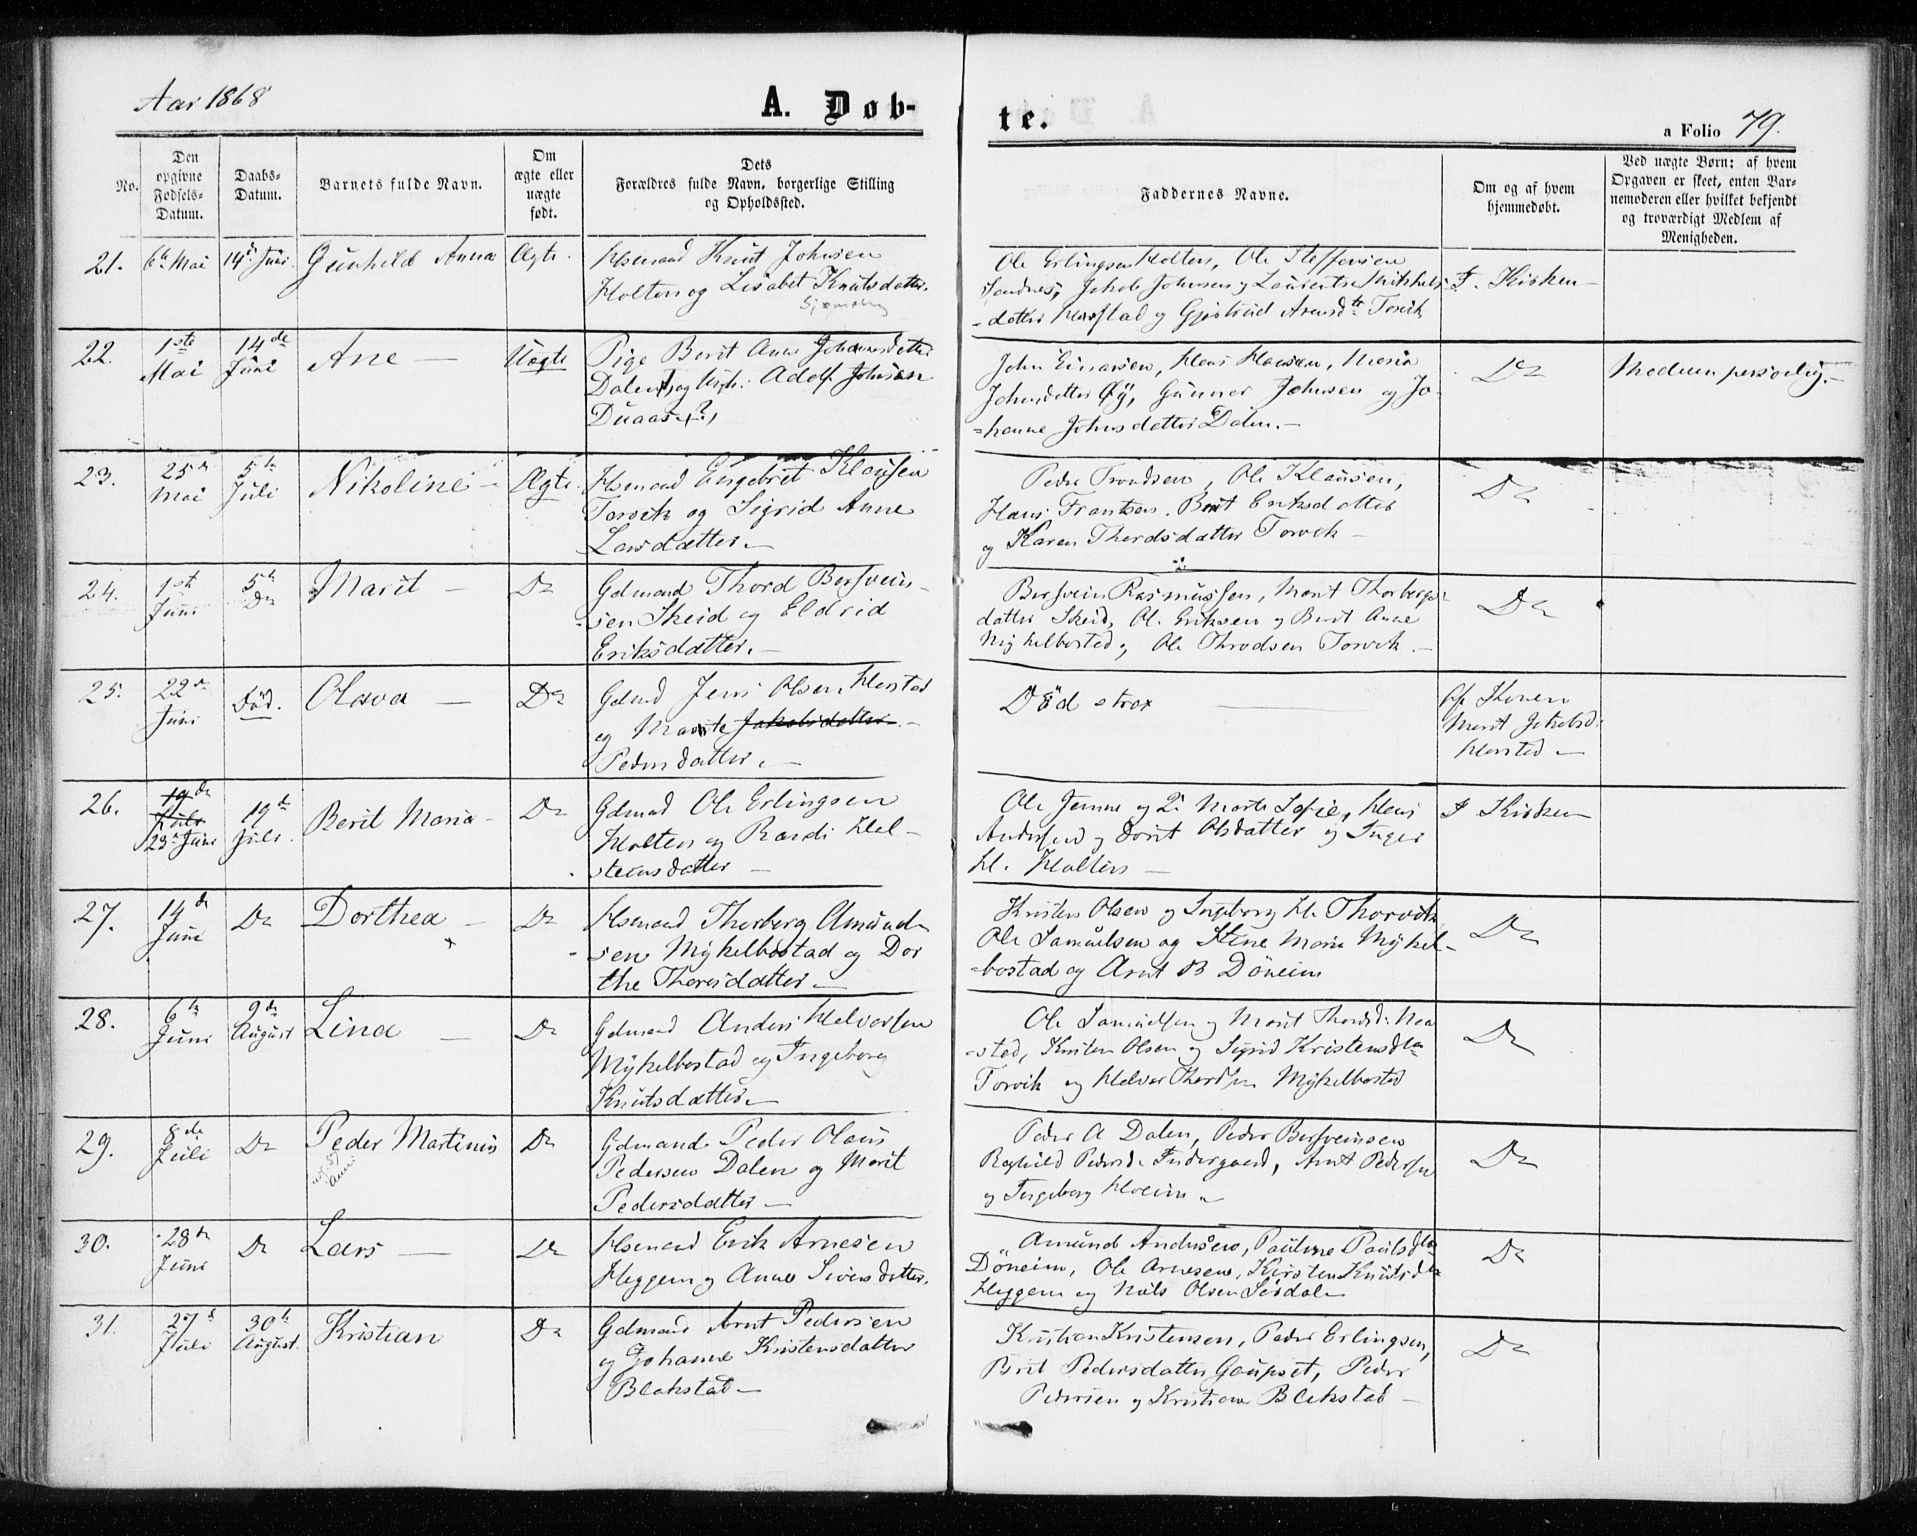 Aar 1868
A. Døb-
te.
a Folio 79.
No.
Den opgivne Fødsels-Datum.
Daabs-Datum.
Barnets fulde Navn.
Om ægte eller uægte født.
Dets Forældres fulde Navn, borgerlige Stilling og Opholdssted.
Faddernes Navne.
Om og af hvem hjemmedøbt.
Ved uægte Børn: af hvem Opgaven er skeet, enten Barnemoderen eller hvilket bekjendt og troværdigt Medlem af Menigheden.
21. 6te Mai 14de Juni Gunhild Anna Ægte.
Husmand Knut Johnsen
Holten og Lisabet Knutsdatter.
Ole Erlingsen Holten, Ole Steffensen
Sandnes, Jakob Johnsen og
I. Kirken
22. 1ste Mai 14de Juni Ane — Uægte
Pige Berit Anne Johannesdatter
Dalen, og Adolf Johnsen
John Einarsen, Hans Hansen, Maria
Johnsdatter Øÿ, Gunnar Johnsen og Jo-
hanne Johnsdatter Dalen. —
Do
Moderen personlig. —
23. 25de Mai 5te Juli Nikoline — Ægte.
Husmand Engebret Klausen
Torvik og Sigrid Anne
Larsdatter. —
Peder Trondsen, Ole Klausen,
Hans Frantsen. Berit Eriksdatter
og Karen Thordsdatter Torvik —
Do
24. 1ste Juni 5te Do Marit — Do
Gdmand Thord Bersvein-
sen Skeid og Eldrid
Eriksdatter. —
Bersvein Rasmussen, Marit Thorbergs-
datter Skeid, Ole Eriksen og Berit Anne
Mykelbostad, Ole Torvik. —
Do
25. 22de Juni Død. Olava — Do
Gdmd Jens Olsen Harstad
og Marte Jakobsdatter. —
Pedersdatter. —
Død strax
Marit Jakobsd.
Harstad —
26. 19de Juli 23de Juni 19de Juli. Berit Maria — Do
Gdmand Ole Erlingsen
Holten og Randi Hal-
steensdatter —
Ole Jenne og Marte Sofie, Hans
Andersen og Dorit Olsdatter og Inger
H. Holten —
I Kirken
27. 14de Juni Do Dorthea — Do
Husmand Thorberg Amund-
sen Mÿkelbostad og Dor
the Thoresdatter —
Kristen Olsen og Ingeborg H. Thorvik
Ole Samuelsen og Stine Maria Mÿkel-
bostad og Arnt B Döneim
Do
28. 6te Juni 9de August Lina — Do
Gdmand Anders Halvorsen
Mÿkelbostad og Ingeborg
Knutsdatter —
Ole Samuelsen og Marit Thordsd.
Kristen Olsen og Sigrid Kristensdtr
Torvik og Halvor Thordsen Mÿkelbostad
Do
29. 8de Juli Do Peder Martinus Do
Gdmand Peder Olaus
Pedersen Dalen og Marit
Pedersdatter —
Peder A Dalen, Peder Bersveinsen
Ragnhild Pedersd. Indergaard, Arnt Pedersen
og Ingeborg Hoeim
Do
30. 28de Juni Do Lars — Do
Husmand Erik Arnesen
Heggem og Anne Siversdatter.
Amund Andersen, Pauline Paulsdtr
Döneim, Ole Arnesen, Kirsten Knutsdtr
Heggem og Nils Olsen
Do
31. 27de Juli 30te August Kristian Do
Gdmand Arnt Pedersen
og Johanne Kristensdatter
Blakstad —
Kristian Kristensen, Peder Erlingsen,
Berit Pedersdatter Gaupset, Peder
Pedersen og Kristiane Blakstad —
Do